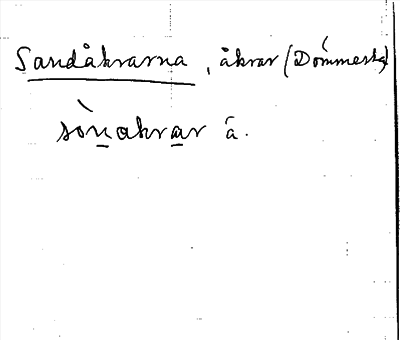 Sandåkrarna, åkrar (Dómmestg)
sònakrar â.